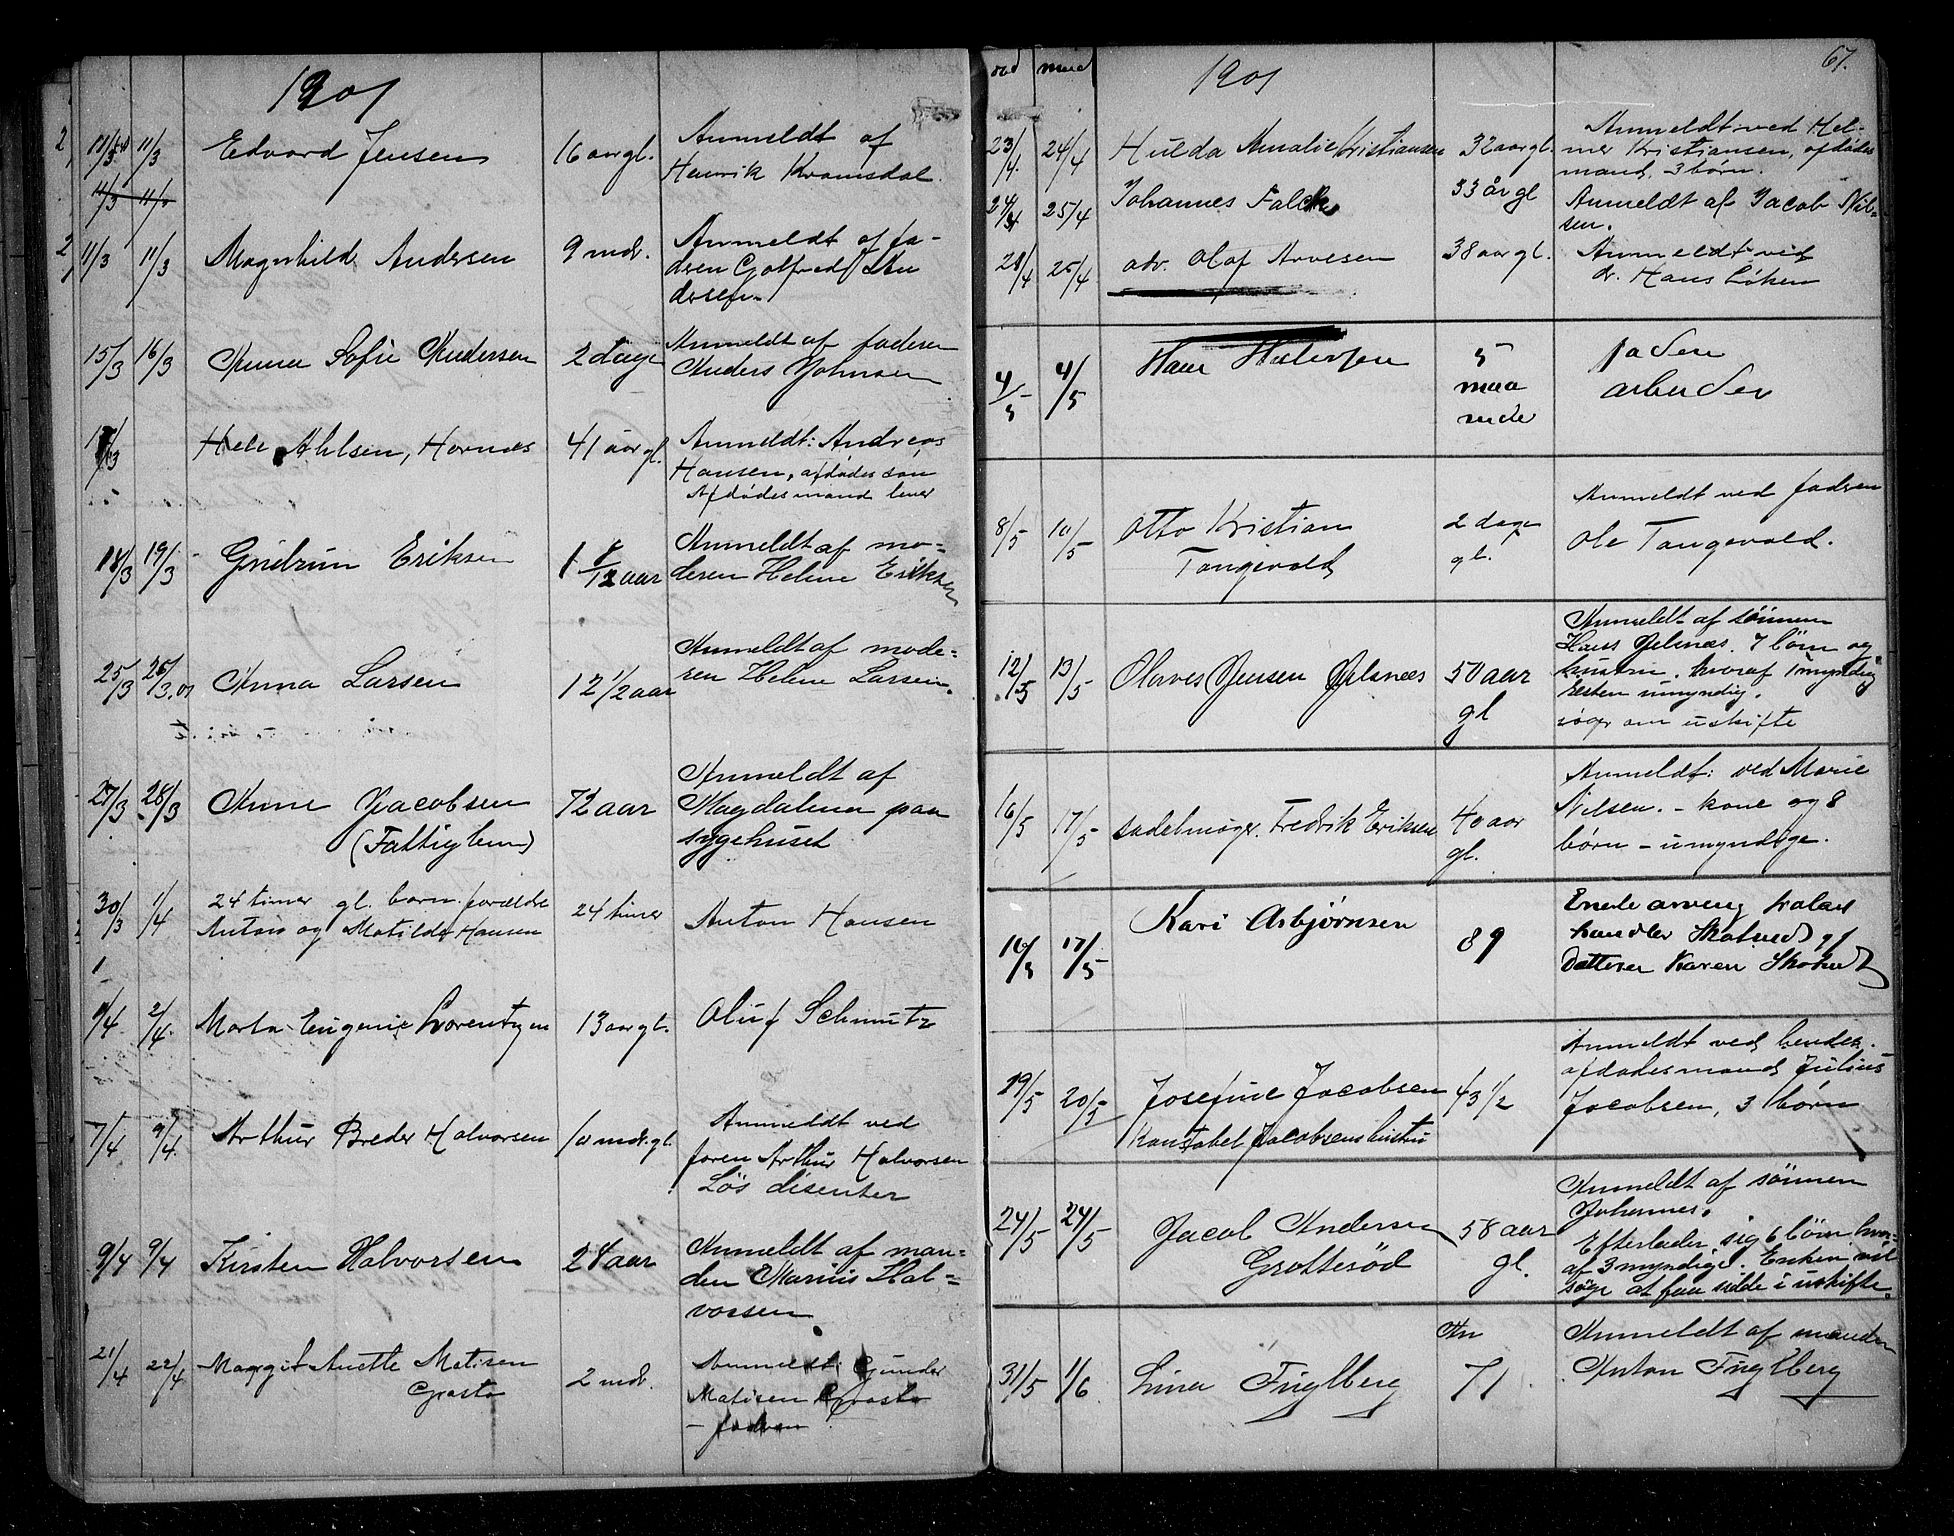 1901
11/3 11/3 Edvard Jensen 16 aar gl. Anmeldt af
Henrik Kramsdal.
11/3 11/3
11/3 11/3 Magnhild Andersen 9 mdr. Anmeldt af fa-
deren Gotfred An
dersen.
15/3 16/3 Anna Sofie Andersen 2 dage Anmeldt af faderen
Anders Johnsen
Ahlsen, Hornæs 41 aar gl. Anmeldt: Andreas
Hansen, afdødes søn
Afdødes mand lever
18/3 19/3 Gudrun Eriksen 1 /12 aar Anmeldt af mo-
deren Helene Eriksen
25/3 26/3.01 Anna Larsen 12 1/2 aar Anmeldt af mode-
ren Helene Larsen.
27/3 28/3 Anne Jacobsen 72 aar Anmeldt af
Magdalena paa
(Fattiglem) sygehuset
30/3 1/4 24 timer gl. barn. forældre 24 timer Anton Hansen
Anton og Matilde Hansen
1
1/4 2/4. Marta Eugenie Lorentzen 13 aar gl. Oluf Schmutz
7/4 9/4. Arthur Breder Halvorsen 10 mdr. gl. Anmeldt ved
faren Arthur Halvorsen
Løs disenter
9/4 9/4 Kirsten Halvorsen 28 aar Anmeldt af man-
den Marius Hal-
vorsen.
21/4 22/4 Margit Anette Matisen 2 mdr. Anmeldt: Gunder
Grosto Matisen Grosto
- fadren
67.
død meld 1901
23/4. 24/4 Hulda Amalie Kristiansen 32 aar gl. Anmeldt ved Hel-
mer Kristiansen, afdødes
mand. 3 børn.
24/4 25/4 Johannes Falck 33 år gl Anmeldt af Jacob Nil-
sen.
24/4 25/4 adv. Olaf Arvesen 38 aar gl. Anmeldt ved
dr. Hans Løken
4/5 4/5 Hans Halvorsen 5 faderen
maa arbeider
neder
8/5 10/5 Otto Kristian 2 dage Anmeldt ved fadren
Tangevald gl. Ole Tangevald.
12/5 13/5 Olaves Jensen Jelsnæs 50 aar gl Anmeldt af sønnen
Hans Jelsnæs. 7 børn og
hustru. hvoraf 1 myndig
resten umyndig.
søger om uskifte
16/5 17/5 sadelmager. Fredrik Eriksen 40 aar gl. Anmeldt: ved Marie
Nilsen. - kone og 8
børn - umyndige.
16/5 17/5 Kari Asbjørnsen 89 Enearving
handler
Datteren Karen
19/5 20/5 Josefine Jacobsen 43 1/2 Anmeldt ved
afdødes mand Julius
Konstabel Jacobsens hustru Jacobsen, 3 børn
24/5 24/5 Jacob Andersen 58 aar Anmeldt af sønnen
Grotterød gl. Johannes.
Efterlader sig 6 børn hvor-
af 3 myndige. Enken vil
søge at faa sidde i uskifte.
31/5 1/6 Lina Fuglberg 71 Anmeldt af manden
Anton Fuglberg